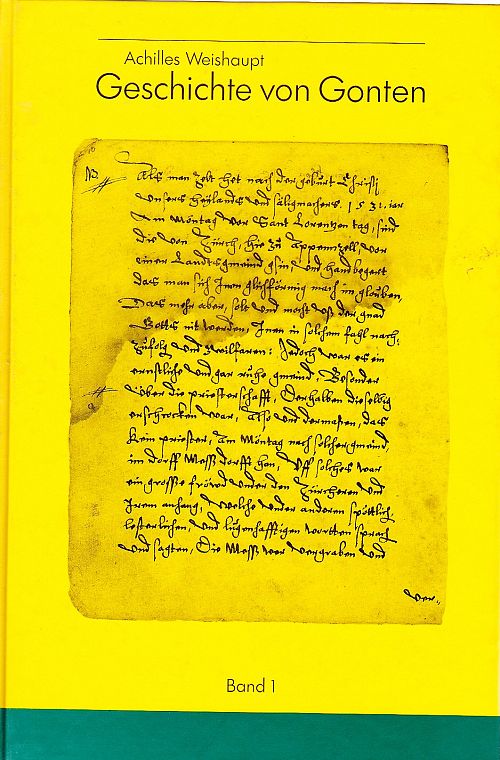 Achilles Weishaupt
Geschichte von Gonten
Als man zelt hat nach der geburt Christj
Unsers heylands und säligmachers. 1531. iar
Am Möntag vor Sant Lorentzen tag, sind
die von Zürch, hie zu Appenzell, vor
einer Landtsgmeind gsin, und hand begert
das man sich Inen glichförmig mach im glouben,
Daas mehr aber, solt und mocht uß der gnad
Gottes nit werden, Inen in solchem fahl nach,
Zufolg und Zwilfaren: Jedoch war es ein
ernstliche und gar ruhe gmeind, Besonder
über die priesterschafft, Derhalben dieselbig
erschrocken war, also und dermaßen, das
kein priester, am Möntag nach solcher gmeind,
im dorff Mess dorfft han, Uff solches war
ein grosse fröwd under den Zürcheren und
Irem anhang, Welche under anderen spöttlich,
lesterlichen, und lugenhafftigen wortten sprach
und sagten, Die Mess wer vergraben und
ver-
Band 1